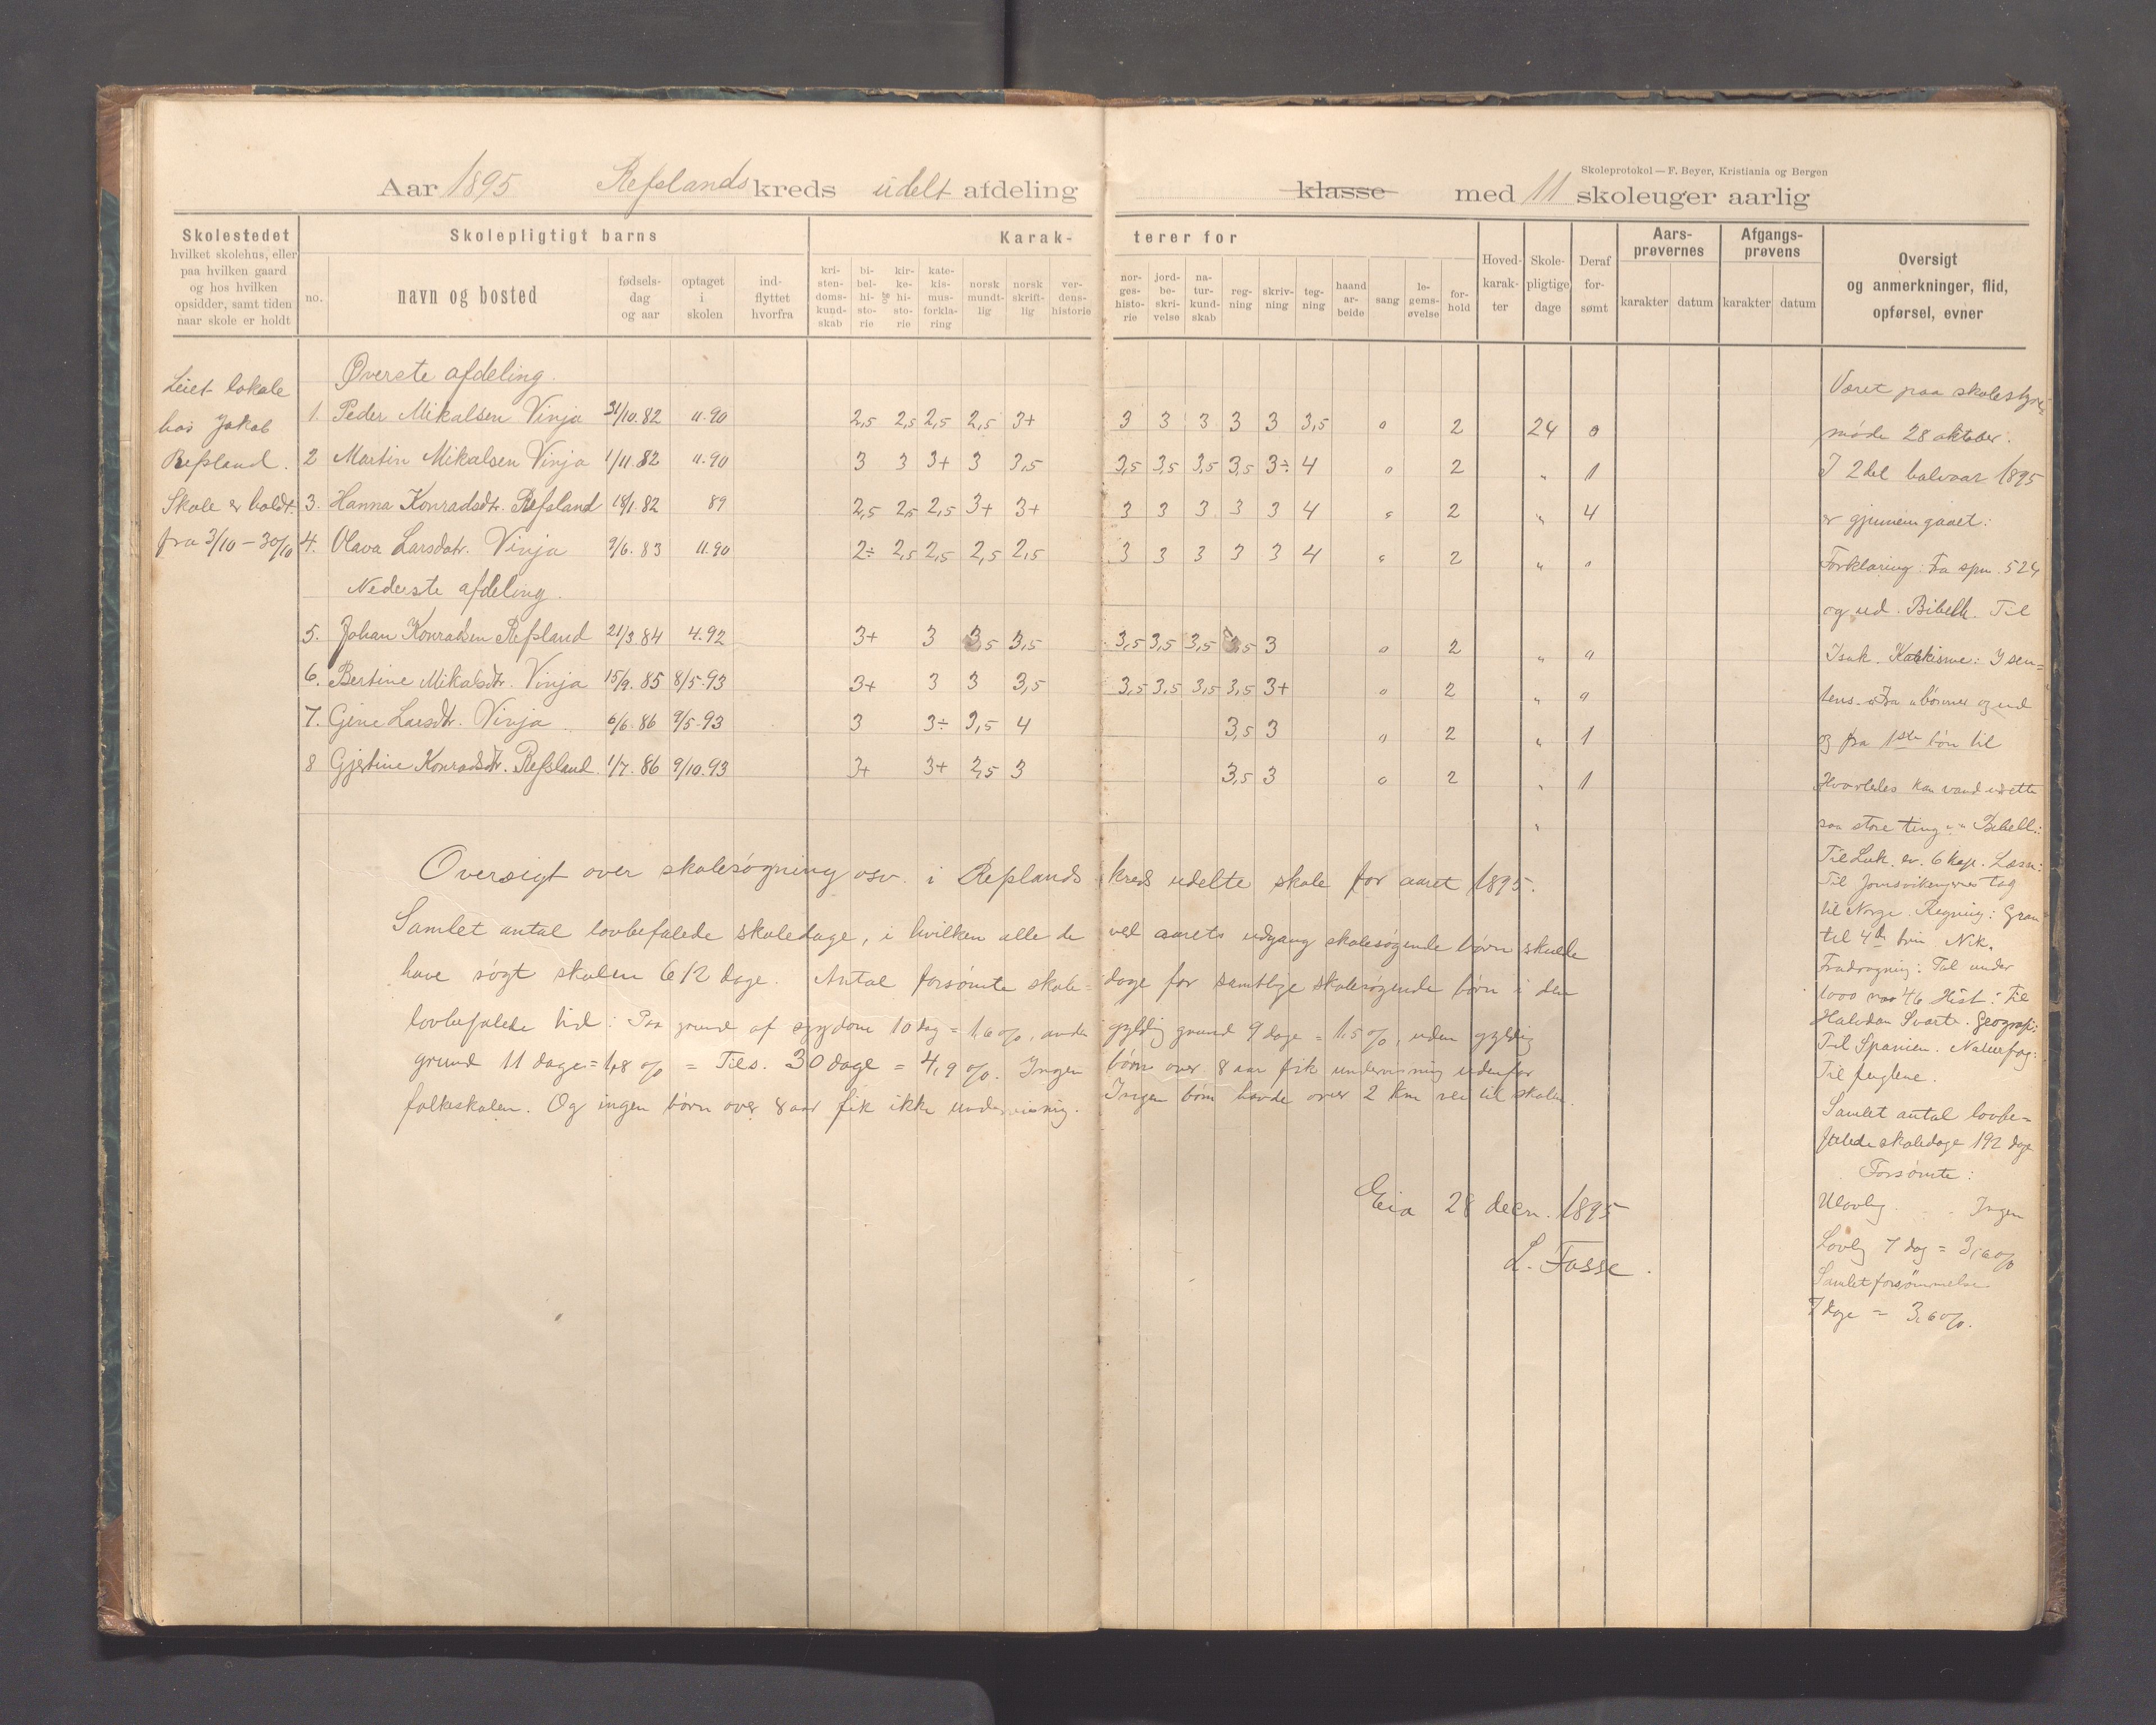 Skoleprotokol — F. Beyer, Kristiania og Bergen
Aar 1895 Refslands kreds udelt afdeling klasse med 11 skoleuger aarlig
Skolestedet
hvilket skolehus, eller
paa hvilken gaard
og hos hvilken
opsidder, samt tiden
naar skole er holdt
Skolepligtigt barns
no. navn og bosted fødsels-dag og aar optaget i skolen ind-flyttet hvorfra
Karak- terer for
kri-sten-doms-kund-skab bi-bel-hi-sto-rie kir-ke-hi-sto-rie kate-kis-mus-forkla-ring norsk mundt-lig norsk skrift-lig ver-dens-historie nor-ges-histo-rie jord-be-skri-velse na-tur-kund-skab reg-ning skriv-ning teg-ning haand ar-beide sang le-gems-øvelse for-hold
Hoved-karak-ter Skole-pligtige dage Deraf for-sømt
Aars-prøvernes karakter datum
Afgangs-prøvens karakter datum
Oversigt
og anmerkninger, flid,
opførsel, evner
Leiet lokale
hos Jakob
Refsland.
Skole er holdt
fra 3/10 – 30/10
Øverste afdeling.
1. Peder Mikalsen Vinja 31/10.82 11.90 2,5 2,5 2,5 2,5 3+ 3 3 3 3 3 3,5 0 2 24 0
2 Martin Mikalsen Vinja 1/11.82 11.90 3 3 3+ 3 3,5 3,5 3,5 3,5 3,5 3÷ 4 0 2 " 1
3. Hanna Konradsdtr. Refsland 18/1.82 89 2,5 2,5 2,5 3+ 3+ 3 3 3 3 3 4 2 " 4
4. Olava Larsdatr. Vinja 9/6.83 11.90 2÷ 2,5 2,5 2,5 2,5 3 3 3 3 3 4 2 " "
Nederste afdeling.
5. Johan Konradsen Refsland 21/3.84 4.92 3+ 3 3,5 3,5 3,5 3,5 3,5 3,5 3 0 2 " 0
6. Bertine Mikalsdtr. Vinja 15/9.85 8/5.93 3+ 3 3 3,5 3,5 3,5 3,5 3,5 3+ 0 2 " 0
7. Gine Larsdtr. Vinja 6/6.86 9/5.93 3 3÷ 3,5 4 3,5 3 0 2 " 1
8 Gjertine Konradsdtr. Refsland 1/7.86 9/10.93 3+ 3+ 2,5 3 3,5 3 0 2 " 1
Oversigt over skolesøgning osv. i Refslands kreds udelte skole for aaret 1895.
Samlet antal lovbefalede skoledage, i hvilken alle de ved aarets udgang skolesøgende børn skulde
have søgt skolen 612 dage. Antal forsømte skole= dage for samtlige skolesøgende børn i den
lovbefalede tid: Paa grund af sygdom 10 dag = 1,6 %, anden gyldig grund 9 dage = 1,5 %, uden gyldig
grund 11 dage = 1,8 % = Tils. 30 dage = 4,9 %. Ingen børn over 8 aar fik undervisning udenfor
folkeskolen. Og ingen børn over 8 aar fik ikke undervisning. Ingen børn havde over 2 km vei til skolen.
Eia 28 decn. 1895
L. Fosse.
Været paa skolestyre
møde 28 oktober.
I 2del halvaar 1895
er gjennemgaaet:
Forklaring: Fra spm. 524
og ud. Bibelh. Til
Isak. Katekisme:
og fra 1ste bøn til
Hvorledes kan vand udrette
saa store ting Bibelh.:
Til Luk. ev. 6 kap. Læsn:
Til Jomsvikingernes tog
til Norge. Regning:
til 4de trin Nik.
Fradragning: Tal under
1000 Hist: Til
Halvdan Svarte. Geografi:
Til Spanien. Naturfag:
Til fuglene.
Samlet antal lovbe=
falede skoledage 192 dage
Forsømte:
Ulovlig Ingen
Lovlig 7 dag = 3,6 %
Samlet forsømmelse
7 dage = 3,6 %.